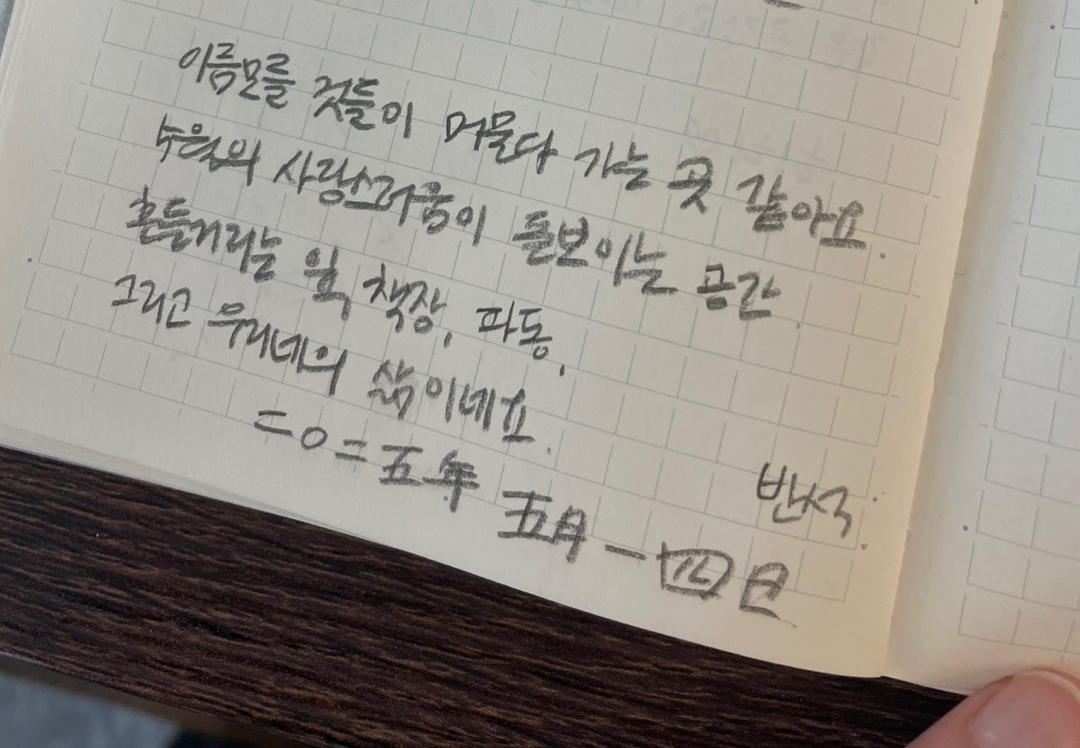 이름모를 것들이 머물다 가는 곳 같아요.
수월의 사랑스러움이 돋보이는 공간.
흔들거리는 잎, 책장, 파동,
그리고 우리네의 삶이네요.
二○二五年 五月 一四日
반석.